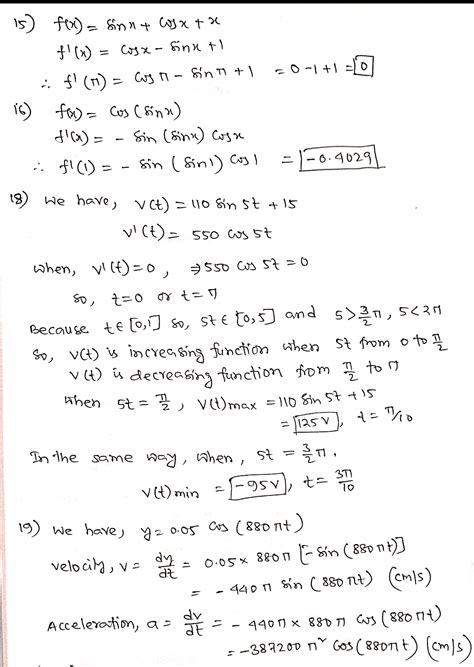 15) f(x) = sinx + cosx + x
f'(x) = cosx - sinx + 1
∴ f'(π) = cosπ - sinπ + 1 = 0-1+1 = 0
16) f(x) = cos(sinx)
f'(x) = - sin(sinx) cosx
∴ f'(1) = - sin (sin1) cos1 = -0.4029
18) we have, v(t) = 110 sin 5t + 15
v'(t) = 550 cos 5t
when, v'(t)=0, ⇒ 550 cos 5t = 0
so, t=0 or t=π
Because t∈[0,1] so, 5t∈[0,5] and 5>3/2π, 5<2π
So, v(t) is increasing function when 5t from 0 to π/2
v(t) is decreasing function from π/2 to π
when 5t = π/2, v(t)max = 110 sin 5t + 15
= 125V, t = π/10
In the same way, when, 5t = 3/2π,
v(t)min = -95V, t = 3π/10
19) we have, y = 0.05 cos (880πt)
velocity, v = dy/dt = 0.05 × 880π [-sin(880πt)]
= -440π sin (880πt) (cm/s)
Acceleration, a = dv/dt = -440π × 880π cos(880πt)
= -387200π² cos(880πt) (cm/s)